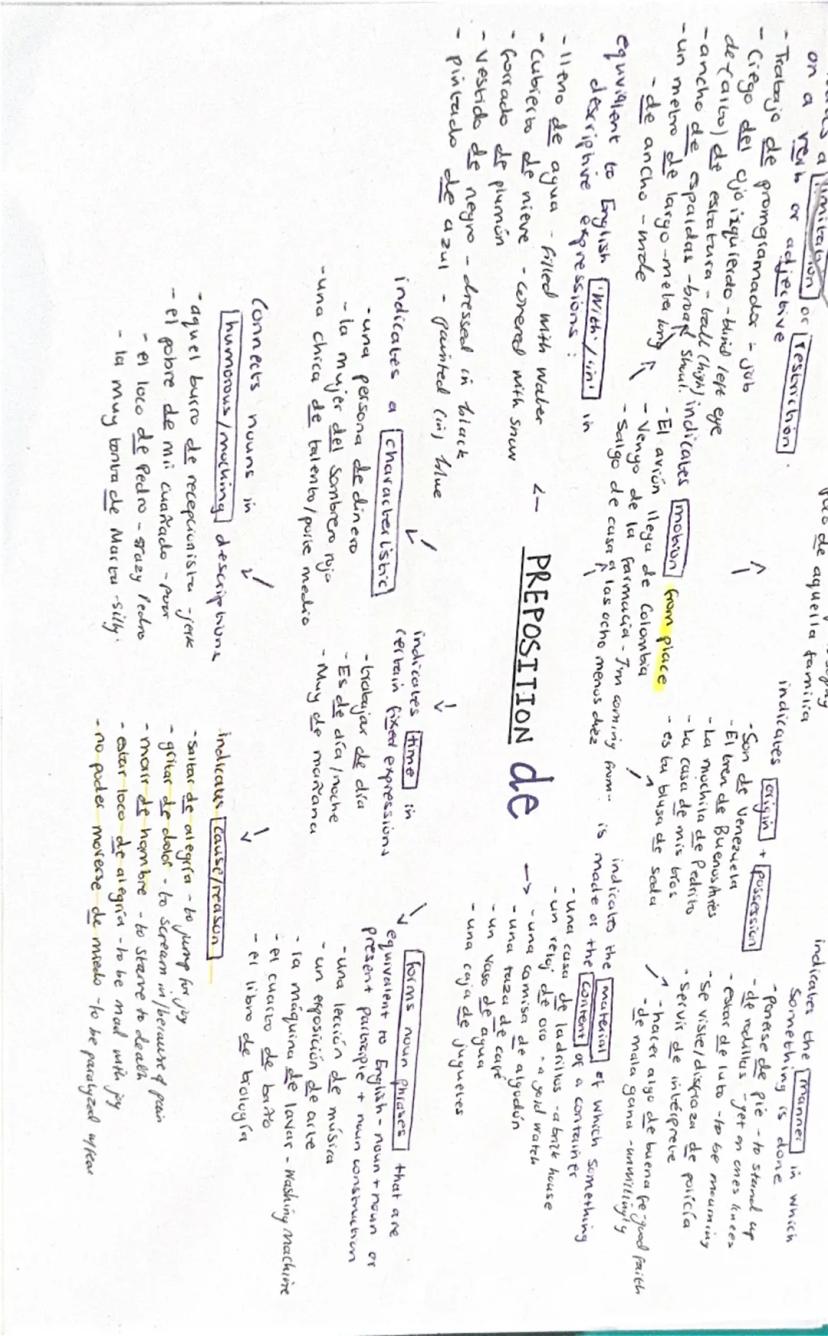 on a verb or adjective
limitation or restriction.
- Trabajo de promgramador - job
- Ciego del ojo izquierdo - blind left eye
de (alto) de estatura - tall (high)
- ancho de espaldas - broad shoul.
- un metro de largo - meter long
- de ancho - wide
que de aquella familia
indicates origin + possession
- Son de Venezuela
- El tren de Buenos Aires
- La mochila de Pedrito
- La casa de mis tios
- es tu blusa de seda
indicates the manner in which
something is done
- ponerse de pie - to stand up
- de rodillas - get on ones knees
- estar de luto - to be mourning
- se viste/disfraza de policía
- servir de intérprete
- hacer algo de buena fe good faith
- de mala gana - unwillingly
indicates motion from place
- El avión llega de Colombia
- Vengo de la farmacia - I'm coming from..
- Salgo de casa a las ocho menos diez
equivalent to English 'with'/'in' in
descriptive expressions:
- lleno de agua - filled with water
- Cubierto de nieve - covered with snow
- forrado de plumón
- Vestido de negro - dressed in black
- pintado de azul - painted (in) blue
<- PREPOSITION de ->
indicates the material of which something
is made or the content of a container
- una casa de ladrillos - a brick house
- un reloj de oro - a gold watch
- una camisa de algodón
- una taza de café
- un vaso de agua
- una caja de juguetes
indicates a characteristic
- una persona de dinero
- la mujer del sombrero rojo
- una chica de talento/porte medio
indicates time in
certain fixed expressions
- trabajar de día
- Es de día/noche
- Muy de mañana
forms noun phrases that are
equivalent to English - noun + noun or
present participle + noun construction
- una lección de música
- un exposición de arte
- la máquina de lavar - washing machine
- el cuarto de baño
- el libro de biología
Connects nouns in
humorous/mocking descriptions
- aquel burro de recepcionista - jerk
- el pobre de mi cuañado - poor
- el loco de Pedro - crazy Pedro
- la muy tonta de Marta - silly.
indicates cause/reason
- saltar de alegría - to jump for joy
- gritar de dolor - to scream in/because of pain
- morir de hambre - to starve to death
- estar loco de alegría - to be mad with joy
- no poder moverse de miedo - to be paralyzed w/fear